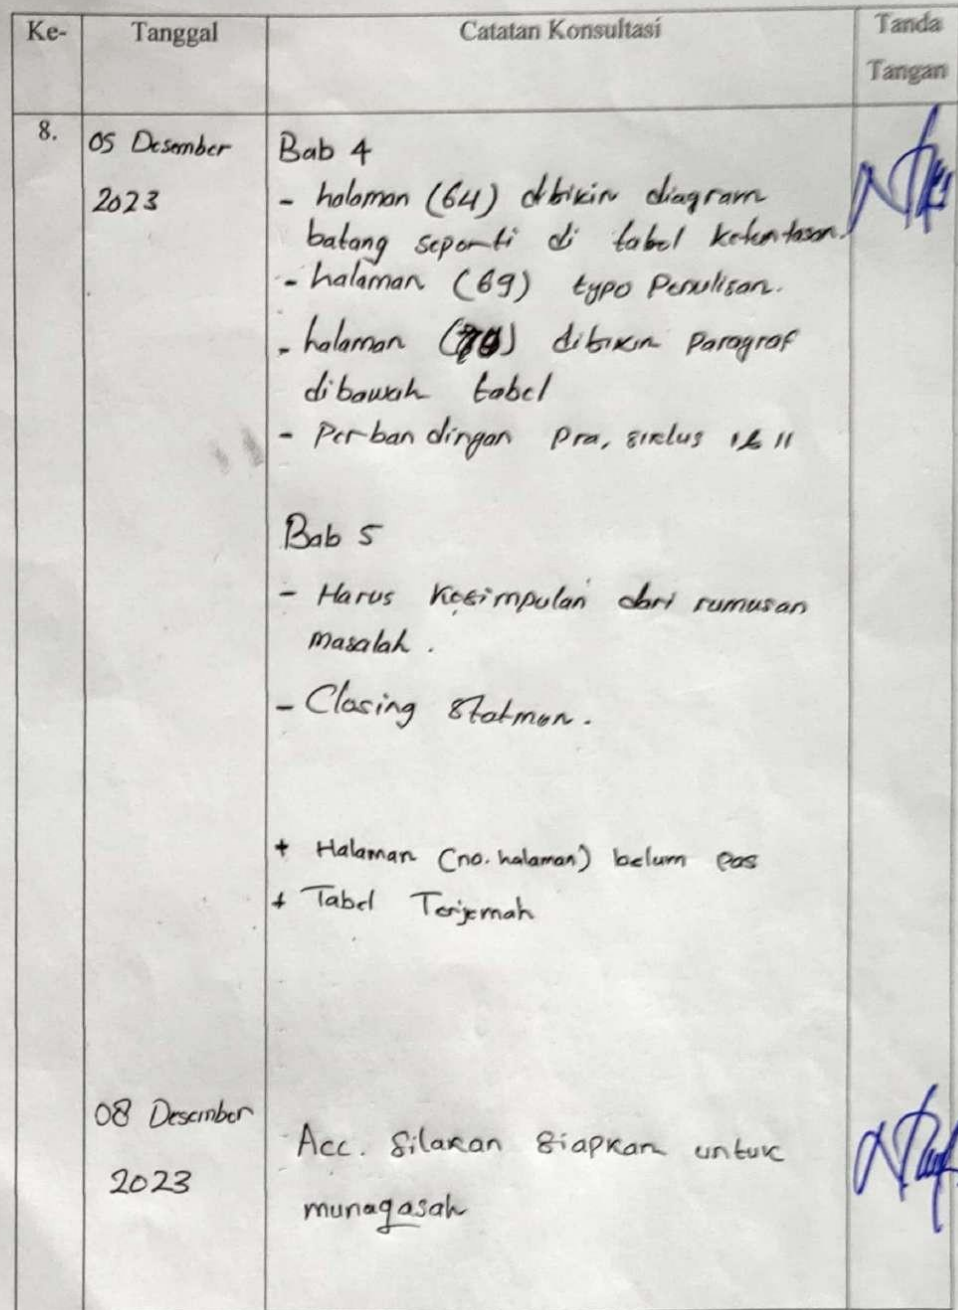 Ke-
Tanggal
Catatan Konsultasi
Tanda
Tangan
8.
05 Desember
2023
Bab 4
- halaman (64) dibikin diagram
batang seperti di tabel ketuntasan.
- halaman (69) typo Penulisan.
- halaman () dibikin Paragraf
dibawah tabel
- Perbandingan Pra, siklus I & II
Bab 5
- Harus Kesimpulan dari rumusan
masalah.
- Closing Statmen.
+ Halaman (no. halaman) belum pas
+ Tabel Terjemah
08 Desember
2023
Acc. Silakan siapkan untuk
munaqasah